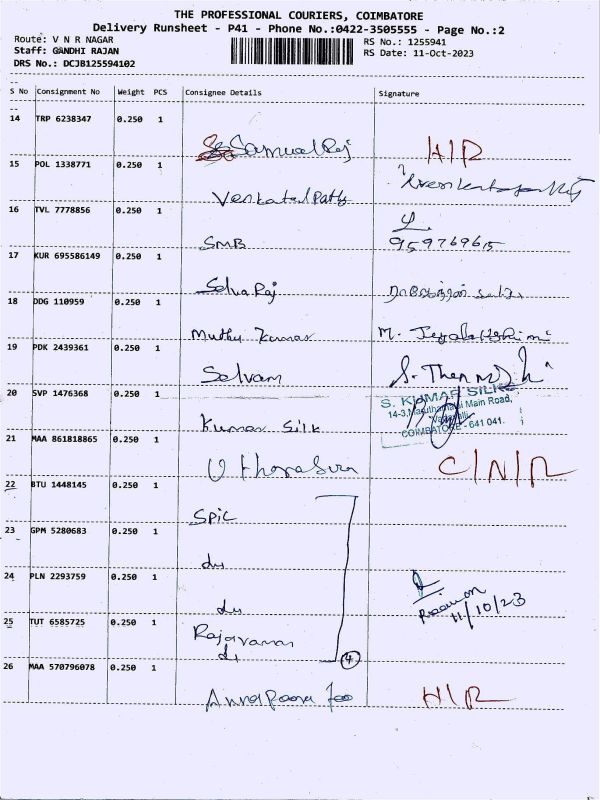 THE PROFESSIONAL COURIERS, COIMBATORE
Delivery Runsheet - P41 - Phone No.:0422-3505555 - Page No.:2
Route: V N R NAGAR
RS No.: 1255941
Staff: GANDHI RAJAN
RS Date: 11-Oct-2023
DRS No.: DCJB125594102
S No Consignment No Weight PCS Consignee Details Signature
14 TRP 6238347 0.250 1
Samuel Raj H/R
15 POL 1338771 0.250 1
Venkatalpathy
16 TVL 7778856 0.250 1
SMB 959769615
17 KUR 695586149 0.250 1
Selva Raj
18 DDG 110959 0.250 1
Muthu Kumar M.
19 PDK 2439361 0.250 1
Selvam S.
20 SVP 1476368 0.250 1
S. KUMAR SILKS
14-3, Main Road,
Kumar Silk
COIMBATORE - 641 041.
21 MAA 861818865 0.250 1
C/N/R
22 BTU 1448145 0.250 1
SPIC
23 GPM 5280683 0.250 1
do
24 PLN 2293759 0.250 1
do
11/10/23
25 TUT 6585725 0.250 1
do
4
26 MAA 570796078 0.250 1
Annapoorna H/R